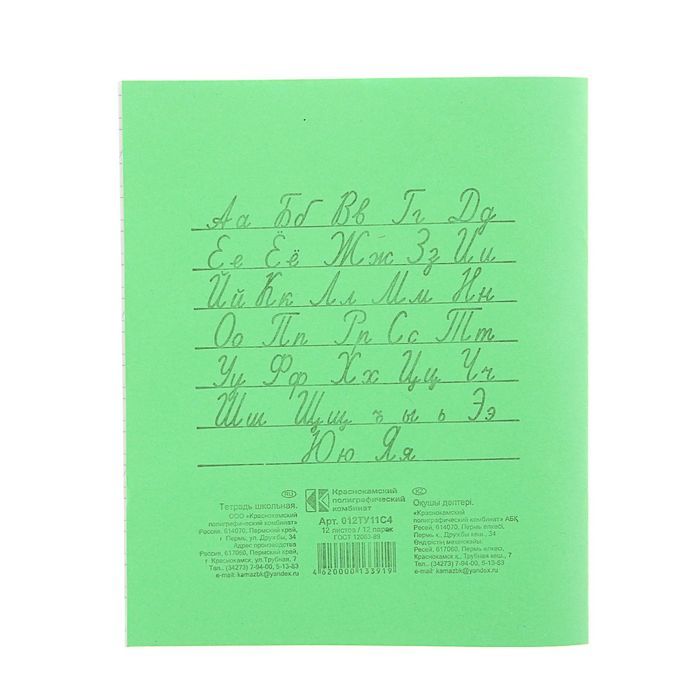 Аа Бб Вв Гг Дд
Ее Ёё Жж Зз Ии
Йй Кк Лл Мм Нн
Оо Пп Рр Сс Тт
Уу Фф Хх Цц Чч
Шш Щщ ъ ы ь Ээ
Юю Яя
RU
Тетрадь школьная.
ООО «Краснокамский
полиграфический комбинат»
Россия, 614070, Пермский край,
г. Пермь, ул. Дружбы, 34
Адрес производства:
Россия, 617060, Пермский край,
г. Краснокамск, ул.Трубная, 7
Тел.: (34273) 7-94-00, 5-13-83
e-mail: kamaztik@yandex.ru
Краснокамский
полиграфический
комбинат
Арт. 012ТУ11С4
12 листов / 12 парақ
ГОСТ 12063-89
4 620000 133919
KZ
Оқушы дәптері.
«Краснокамский
полиграфический комбинат» АБҚ
Ресей, 614070, Пермь өлкесі,
Пермь к., Дружбы көш., 34
Өндірістің мекенжайы:
Ресей, 617060, Пермь өлкесі,
Краснокамск к., Трубная көш., 7
Тел.: (34273) 7-94-00, 5-13-83
e-mail: kamaztik@yandex.ru